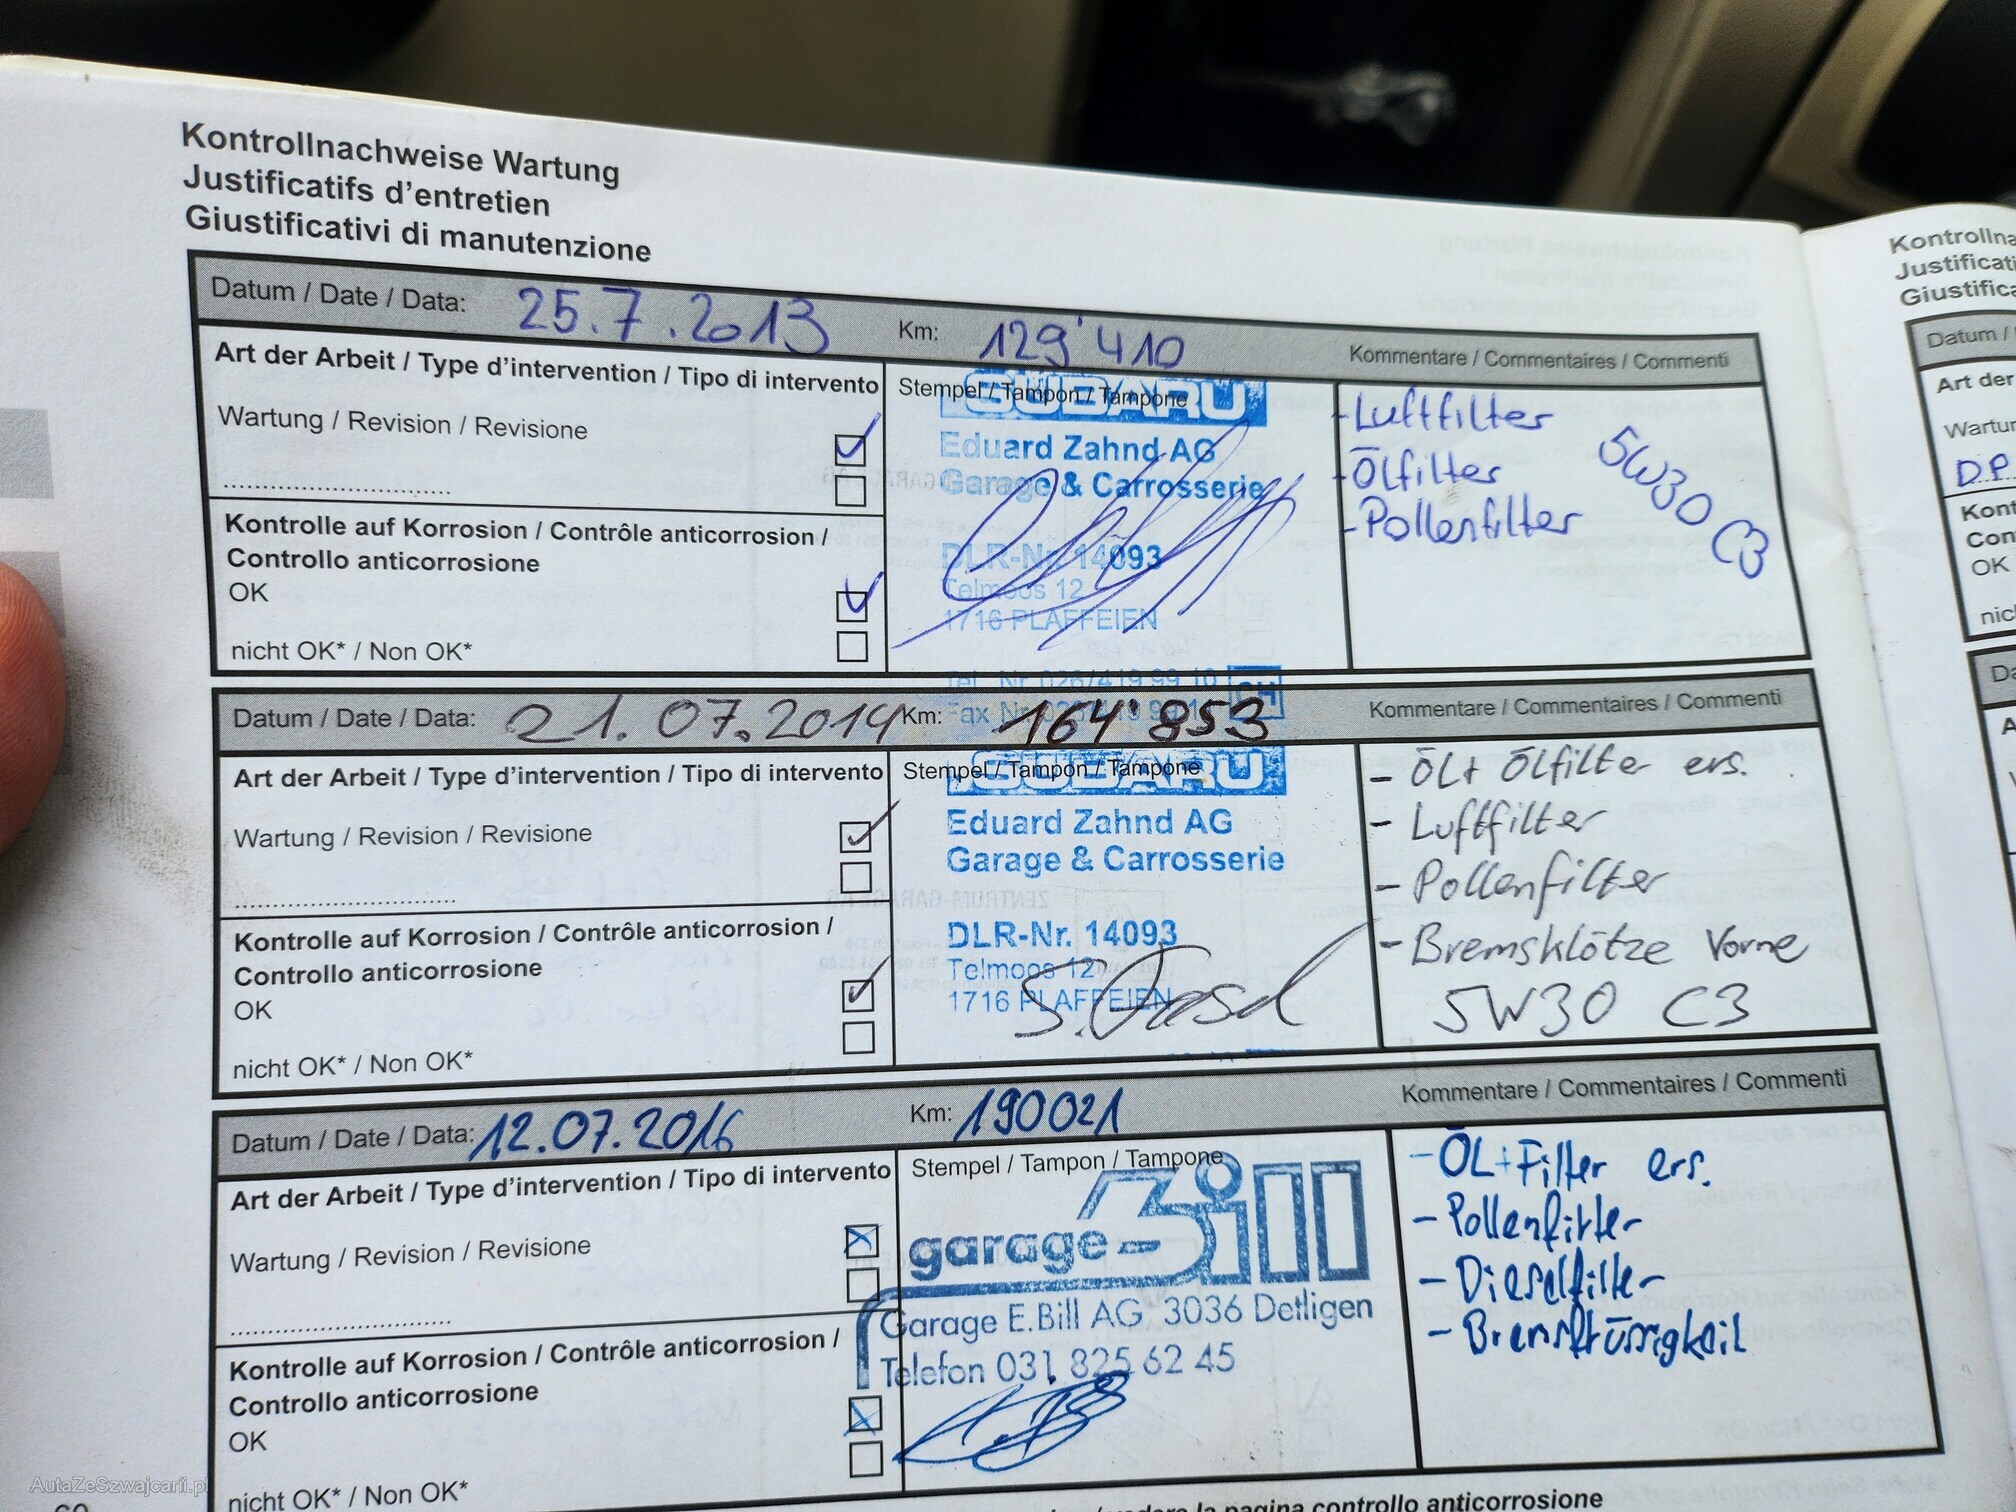 Kontrollnachweise Wartung
Justificatifs d'entretien
Giustificativi di manutenzione
Datum / Date / Data: 25.7.2013 Km: 129'410 Kommentare / Commentaires / Commenti
Art der Arbeit / Type d'intervention / Tipo di intervento
Wartung / Revision / Revisione
Kontrolle auf Korrosion / Contrôle anticorrosion /
Controllo anticorrosione
OK
nicht OK* / Non OK*
Stempel / Tampon / Tampone
SUBARU
Eduard Zahnd AG
Garage & Carrosserie
DLR-Nr. 14093
Telmoos 12
1716 PLAFFEIEN
Tel. Nr. 026/419 99 10
Fax Nr.
CH
- Luftfilter
- Ölfilter
- Pollenfilter
5W30 C3
Datum / Date / Data: 21.07.2014 Km: 164'853 Kommentare / Commentaires / Commenti
Art der Arbeit / Type d'intervention / Tipo di intervento
Wartung / Revision / Revisione
Kontrolle auf Korrosion / Contrôle anticorrosion /
Controllo anticorrosione
OK
nicht OK* / Non OK*
Stempel / Tampon / Tampone
SUBARU
Eduard Zahnd AG
Garage & Carrosserie
DLR-Nr. 14093
Telmoos 12
1716 PLAFFEIEN
- ÖL+ Ölfilter ers.
- Luftfilter
- Pollenfilter
- Bremsklötze Vorne
5W30 C3
Datum / Date / Data: 12.07.2016 Km: 190021 Kommentare / Commentaires / Commenti
Art der Arbeit / Type d'intervention / Tipo di intervento
Wartung / Revision / Revisione
Kontrolle auf Korrosion / Contrôle anticorrosion /
Controllo anticorrosione
OK
nicht OK* / Non OK*
Stempel / Tampon / Tampone
garage Bill
Garage E.Bill AG 3036 Detligen
Telefon 031 825 62 45
- ÖL+Filter ers.
- Pollenfilter
- Dieselfilter
- Bremsflüssigkeit
la pagina controllo anticorrosione
Kontrollna
Justificati
Giustifica
Datum /
Art der
Wartur
D.P.
Kont
Con
OK
nic
AutaZeSzwajcarii.pl